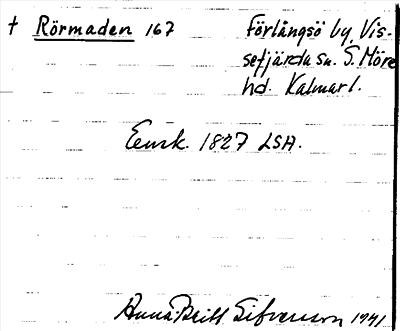 † Rörmaden 167 Förlångsö by, Vis-
sefjärda sn. S. Möre
hd. Kalmar l.
Ensk. 1827 LSA.
Anna-Britt Sifvenson 1941